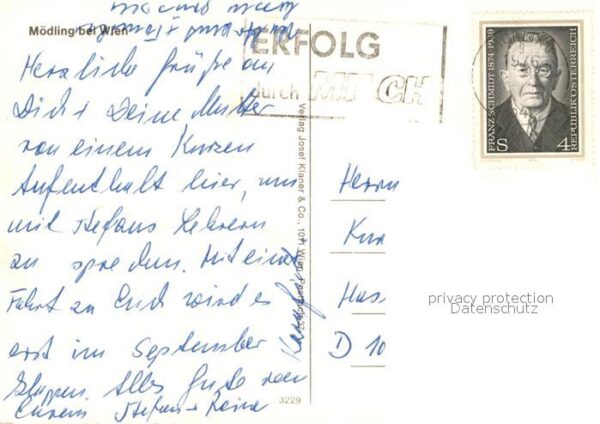 Mödling bei Wien
ERFOLG
durch MILCH
FRANZ SCHMIDT 1874-1939
REPUBLIK ÖSTERREICH
S 4
Herzliche Grüße an
Dich + Deine Mutter
von einem kurzen
Aufenthalt hier, um
mit Stefans Lehrern
zu sprechen. Mit einer
Fahrt zu Euch wird es
erst im September
klappen. Alles Gute von
Eurem Stefan +
Verlag Josef Klaner & Co., 1011 Wien, Postfach
3229
Herrn
Kur
Has
D 10
privacy protection
Datenschutz